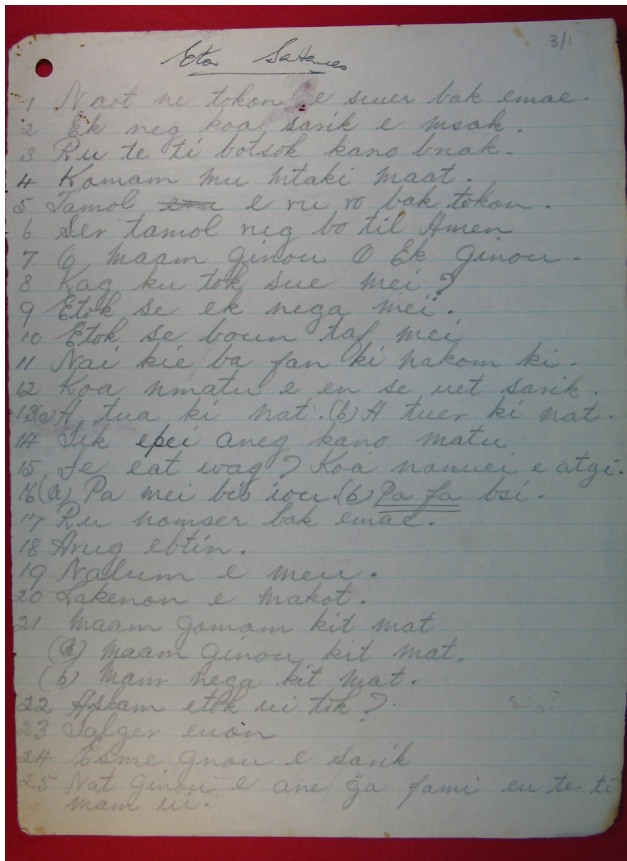 3/1
Eton Sentences
1 Naot ne tokon e suer bak emae.
2 Ek neg koa sarik e msak.
3 Ru te ti botsok kano bnak.
4 Komam mu mtaki maat.
5 Tamol e ru ro bak tokon.
6 Ser tamol neg bo til Amen
7 O maam ginou O Ek ginou.
8 Kag ku tok sue mei?
9 Etok se ek nega mei.
10 Etok se boun taf mei
11 Nai kie ba fan ki nakom ki.
12 Koa nmatu e en se uet sarik.
13(a) A tua ki nat. (b) A tuer ki nat.
14 Tik epei aneg kano matu
15. Fe eat wag? Koa namuei e atgi.
16(a) Pa mei bis iou. (b) Pa fa bsi.
17 Ru namser bak emae.
18 Arug ebtin.
19 Nalum e meu.
20 Lakenon e makot.
21 Maam gomam kit mat
(a) Maam ginou kit mat.
(b) Mam nega kit mat.
22 Askam etok ui tik?
23 Talger euon
24 Esme gnou e sarik
25 Nat ginou e ane ga fami eu te ti
mam iu.